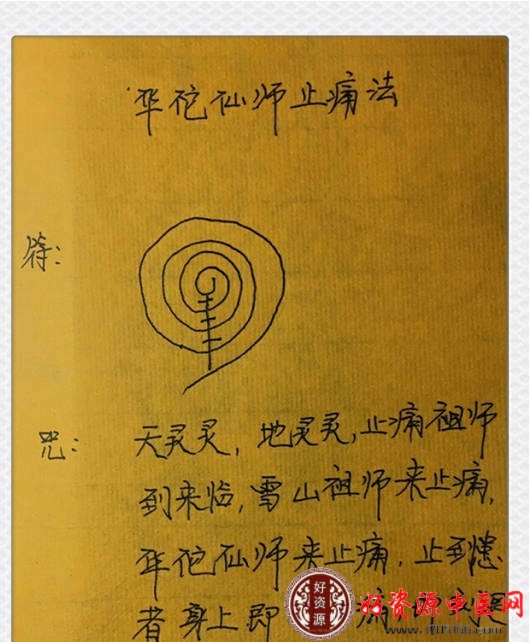 华佗仙师止痛法
符:
咒: 天灵灵,地灵灵,止痛祖师
到来临,雪山祖师来止痛,
华佗仙师来止痛,止到患
者身上即
痛
好资源
好资源中医网